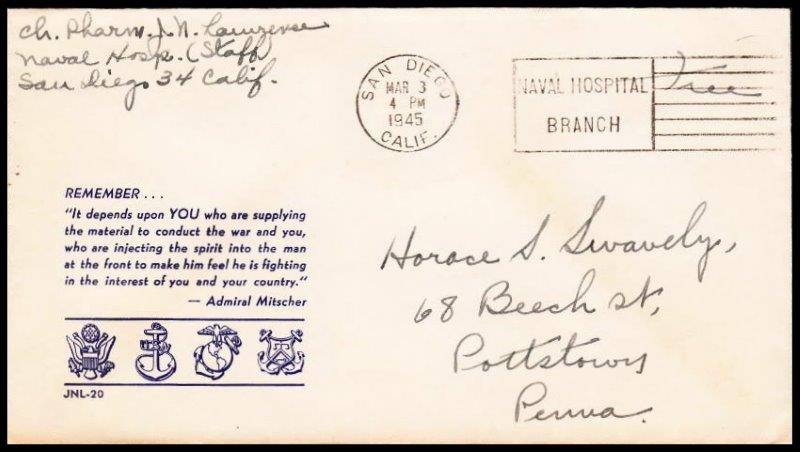 Ch. Pharm. J. N. Lawrense
Naval Hosp. (Staff)
San Diego 34 Calif.
SAN DIEGO
MAR 3
4 PM
1945
CALIF.
NAVAL HOSPITAL
BRANCH
Free
REMEMBER . . .
"It depends upon YOU who are supplying
the material to conduct the war and you,
who are injecting the spirit into the man
at the front to make him feel he is fighting
in the interest of you and your country."
— Admiral Mitscher
JNL-20
Horace S. Swavely,
68 Beech st,
Pottstown
Penna.